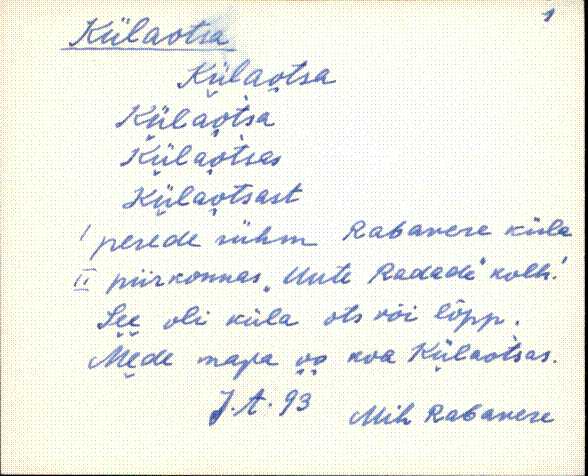 1
Külaotsa
Külaotsa
Külaotsa
Külaotsas
Külaotsast
1 perede rühm Rabavere küla
II piirkonnas „Uute Radade" kolh.
See oli küla ots või lõpp.
Mede maja oo kva Külaotsas.
J.A. 93 Mih Rabavere